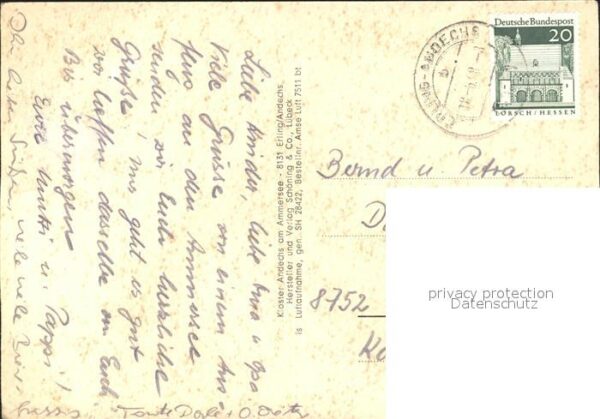 Liebe Kinder, liebe Oma u. Opa
Viele Grüsse von einem Aus-
flug an den Ammersee
senden wir Euch herzliche
Grüße, uns geht es gut
wir hoffen dasselbe von Euch
Bis übermorgen
Eure Mutti u. Pappi!
viele viele
Tante + O.
Kloster Andechs am Ammersee - 8131 Erling/Andechs
Hersteller und Verlag Schöning & Co., Lübeck
is Luftaufnahme, gen. SH 28422, Bestellnr. Amse Luft 7511 bt
ERLING-ANDECHS
Deutsche Bundespost
20
LORSCH/HESSEN
Bernd u. Petra
D
8752
K
privacy protection
Datenschutz